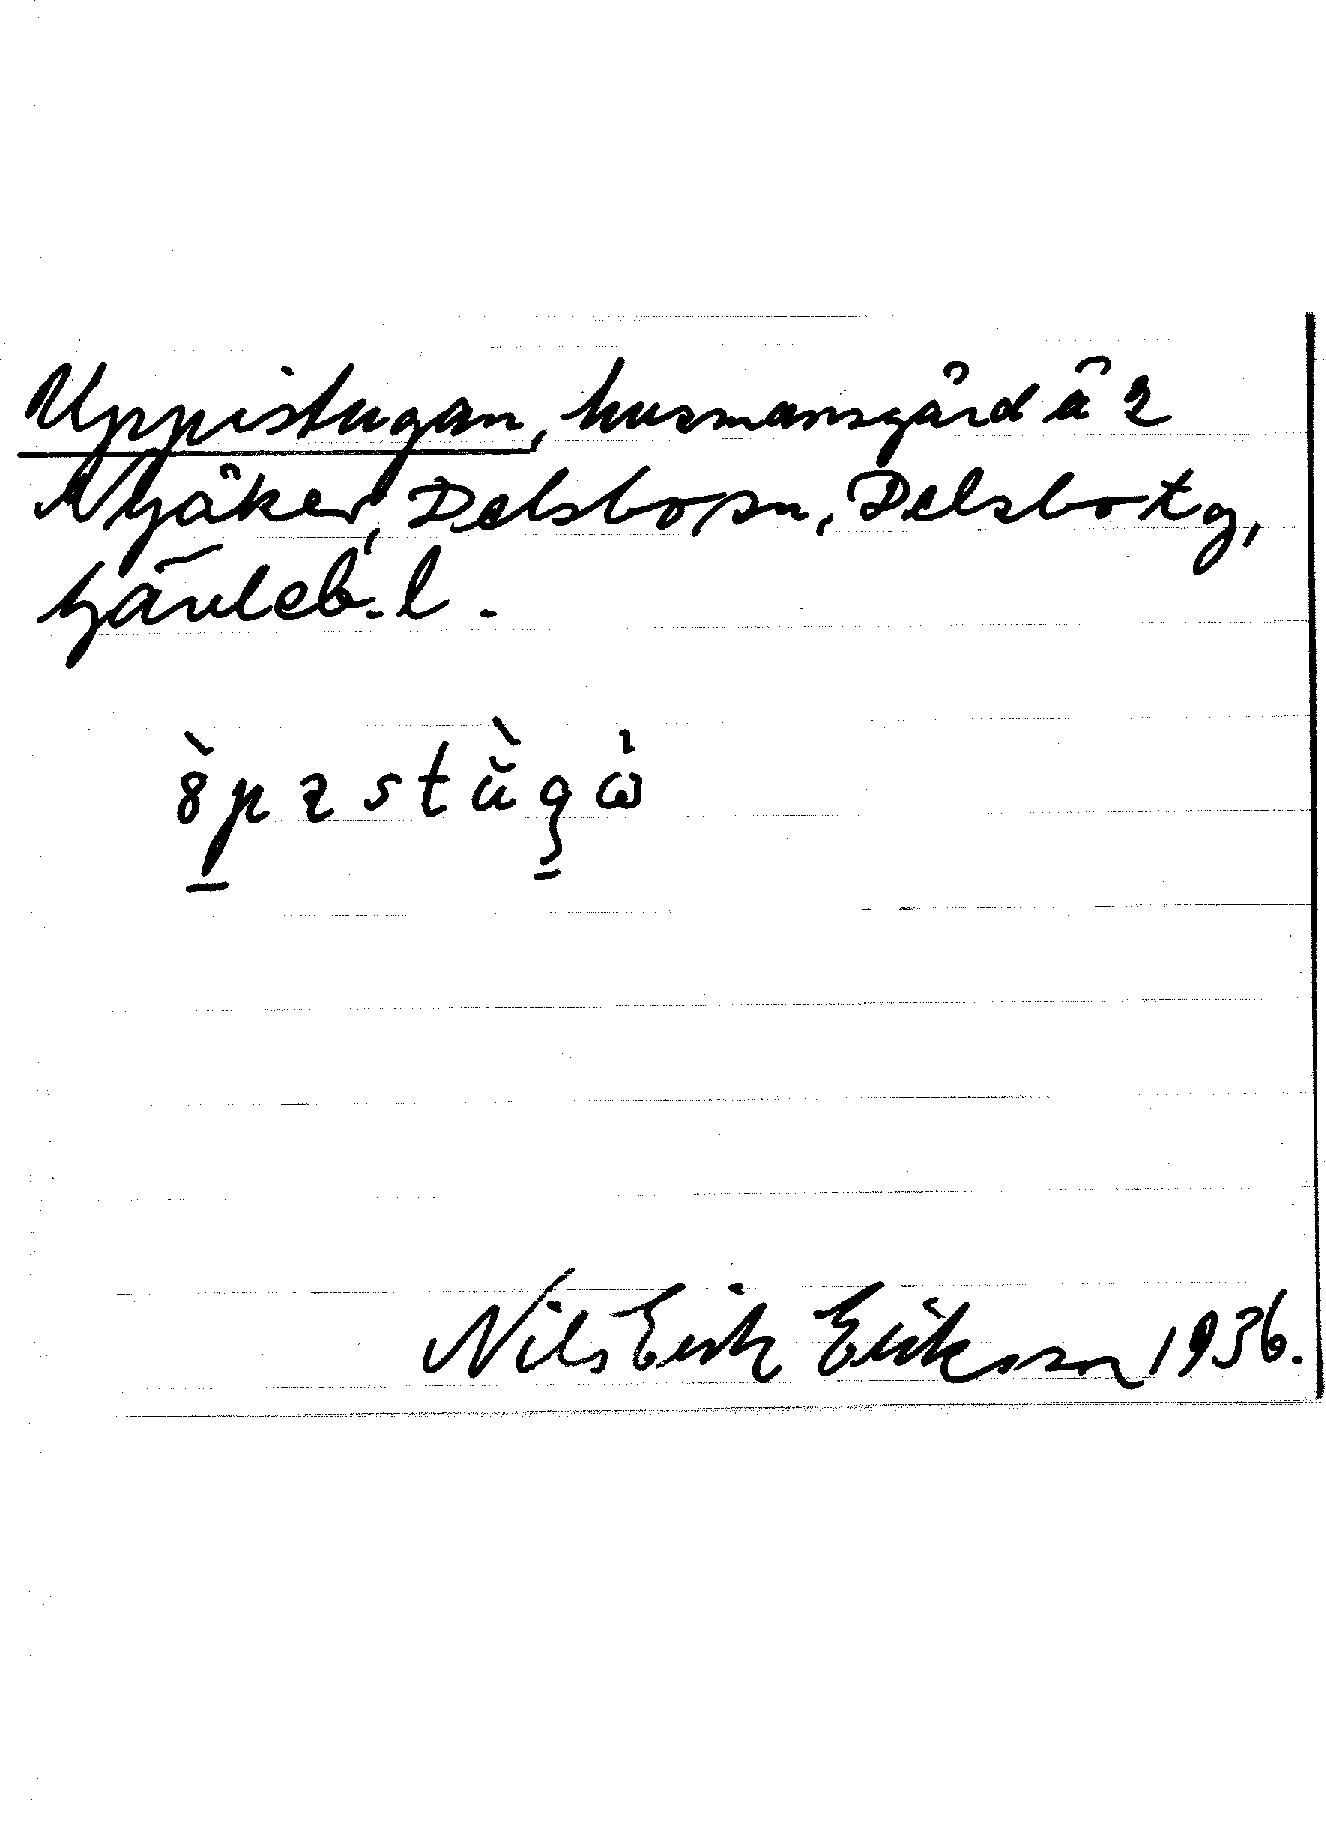 Uppistugan, husmansgård å 2
Nyåker, Delsbo sn, Delsbo tg,
Gävleb. l.
Nils Erik Erikson 1936.